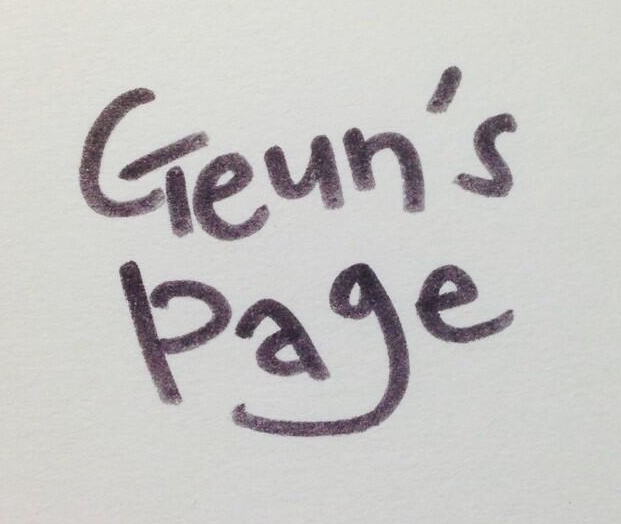 Geun's
page